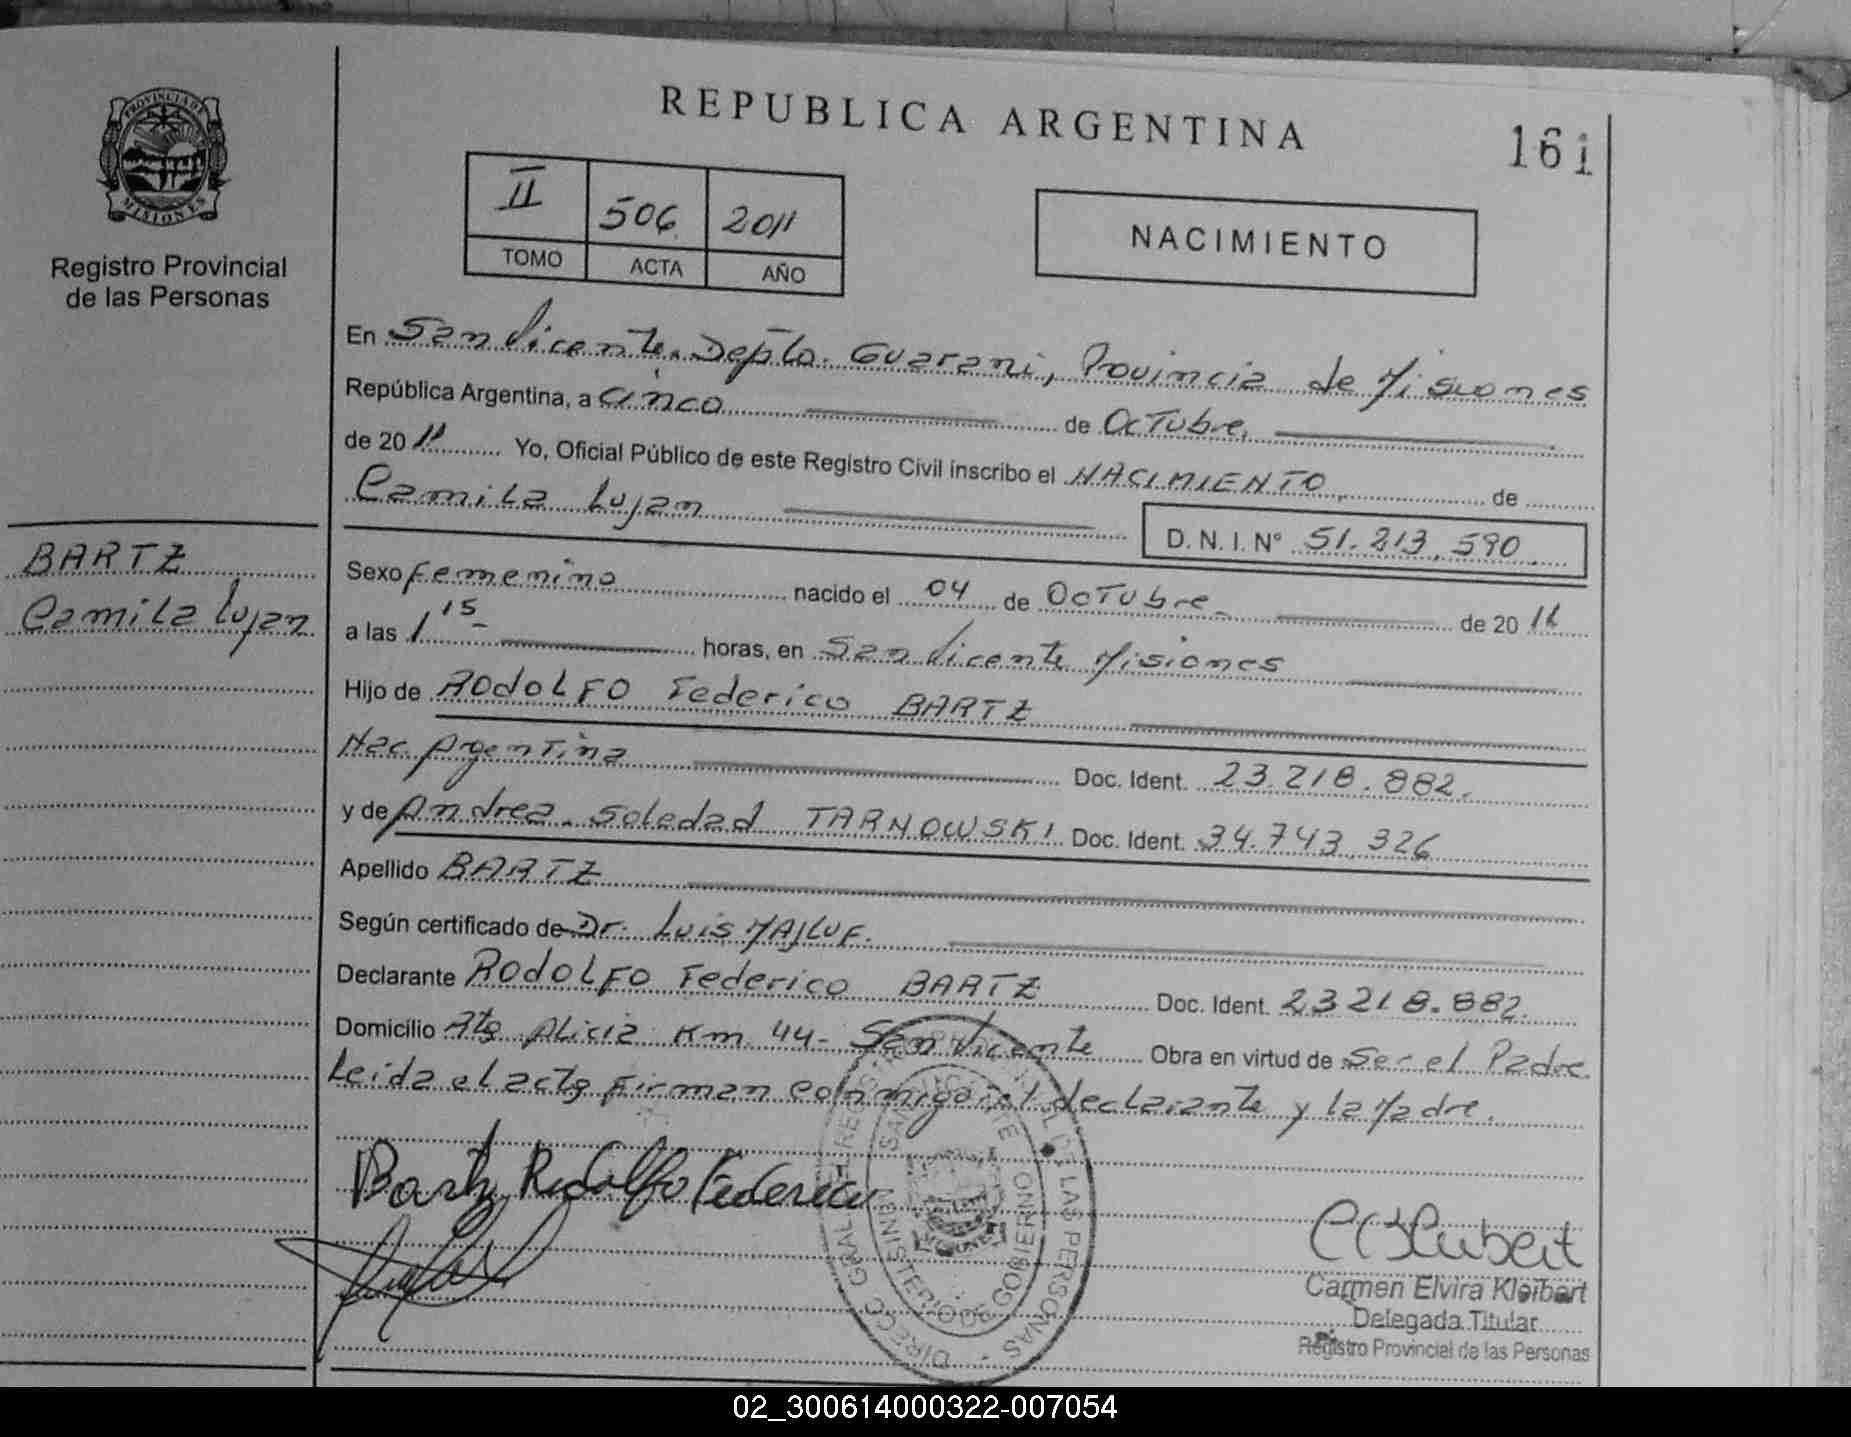 PROVINCIA DE
MISIONES
Registro Provincial
de las Personas
BARTZ
Camila Lujan
REPUBLICA ARGENTINA
161
II 506 2011
TOMO ACTA AÑO
NACIMIENTO
En San Vicente. Depto. Guarani, Provincia de Misiones
República Argentina, a cinco de Octubre,
de 2011 Yo, Oficial Público de este Registro Civil inscribo el NACIMIENTO de
Camila Lujan
D.N.I. N° 51.213.590
Sexo femenino nacido el 04 de Octubre de 2011
a las 1,15 horas, en San Vicente Misiones
Hijo de RODOLFO Federico BARTZ
Nac. Argentina Doc. Ident. 23.218.882.
y de Andrea Soledad TARNOWSKI Doc. Ident. 34.743.326
Apellido BARTZ
Según certificado de Dr. Luis MAJLUF.
Declarante RODOLFO Federico BARTZ Doc. Ident. 23218.882.
Domicilio Alicia Km 44- San Vicente Obra en virtud de Ser el Padre
Leida el acta firman conmigo el declarante y la Madre.
Bartz Rodolfo Federico
DIRECC. GRAL. DE LAS PERSONAS
MINISTERIO DE GOBIERNO
SAN VICENTE
MISIONES
Carmen Elvira Kleibert
Delegada Titular
Registro Provincial de las Personas
02_300614000322-007054